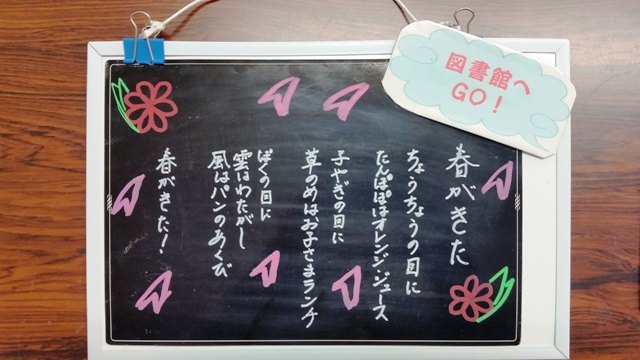 図書館へ
GO!
春がきた
ちょうちょうの目に
たんぽぽはオレンジジュース
子やぎの目に
草のめはお子さまランチ
ぼくの目に
雲はわたがし
風はパンのあくび
春がきた!